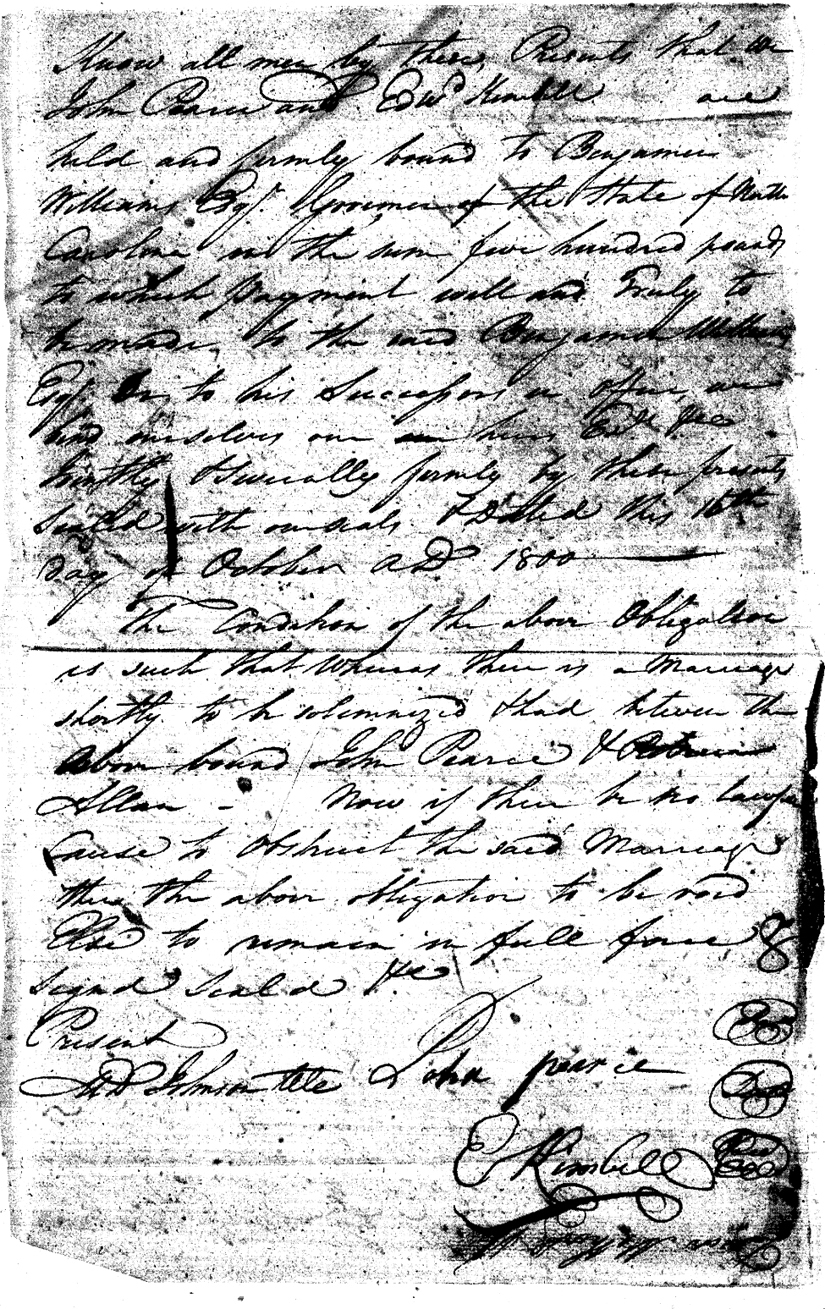 Know all men by these Presents that we
John Pearce and Edwd Kimbell are
held and firmly bound to Benjamin
Williams Esqr. Governor of the State of North
Carolina in the sum five hundred pounds
to which payment well and Truly to
be made, to the said Benjamin Williams
Esqr. Or to his Successors in office, we
bind ourselves our heirs Exrs &c
Jointly & severally firmly by these presents
Seal'd with our seals & Dated this 16th
day of October AD 1800
The Condition of the above Obligation
is such that whereas there is a Marriage
shortly to be solemnized & had between the
above bound John Pearce &
Allen - Now if there be no lawful
Cause to Obstruct the said Marriage
then the above obligation to be void
Else to remain in full force &
Signd Seald &c
Present
Johnson John pearce
E Kimbell